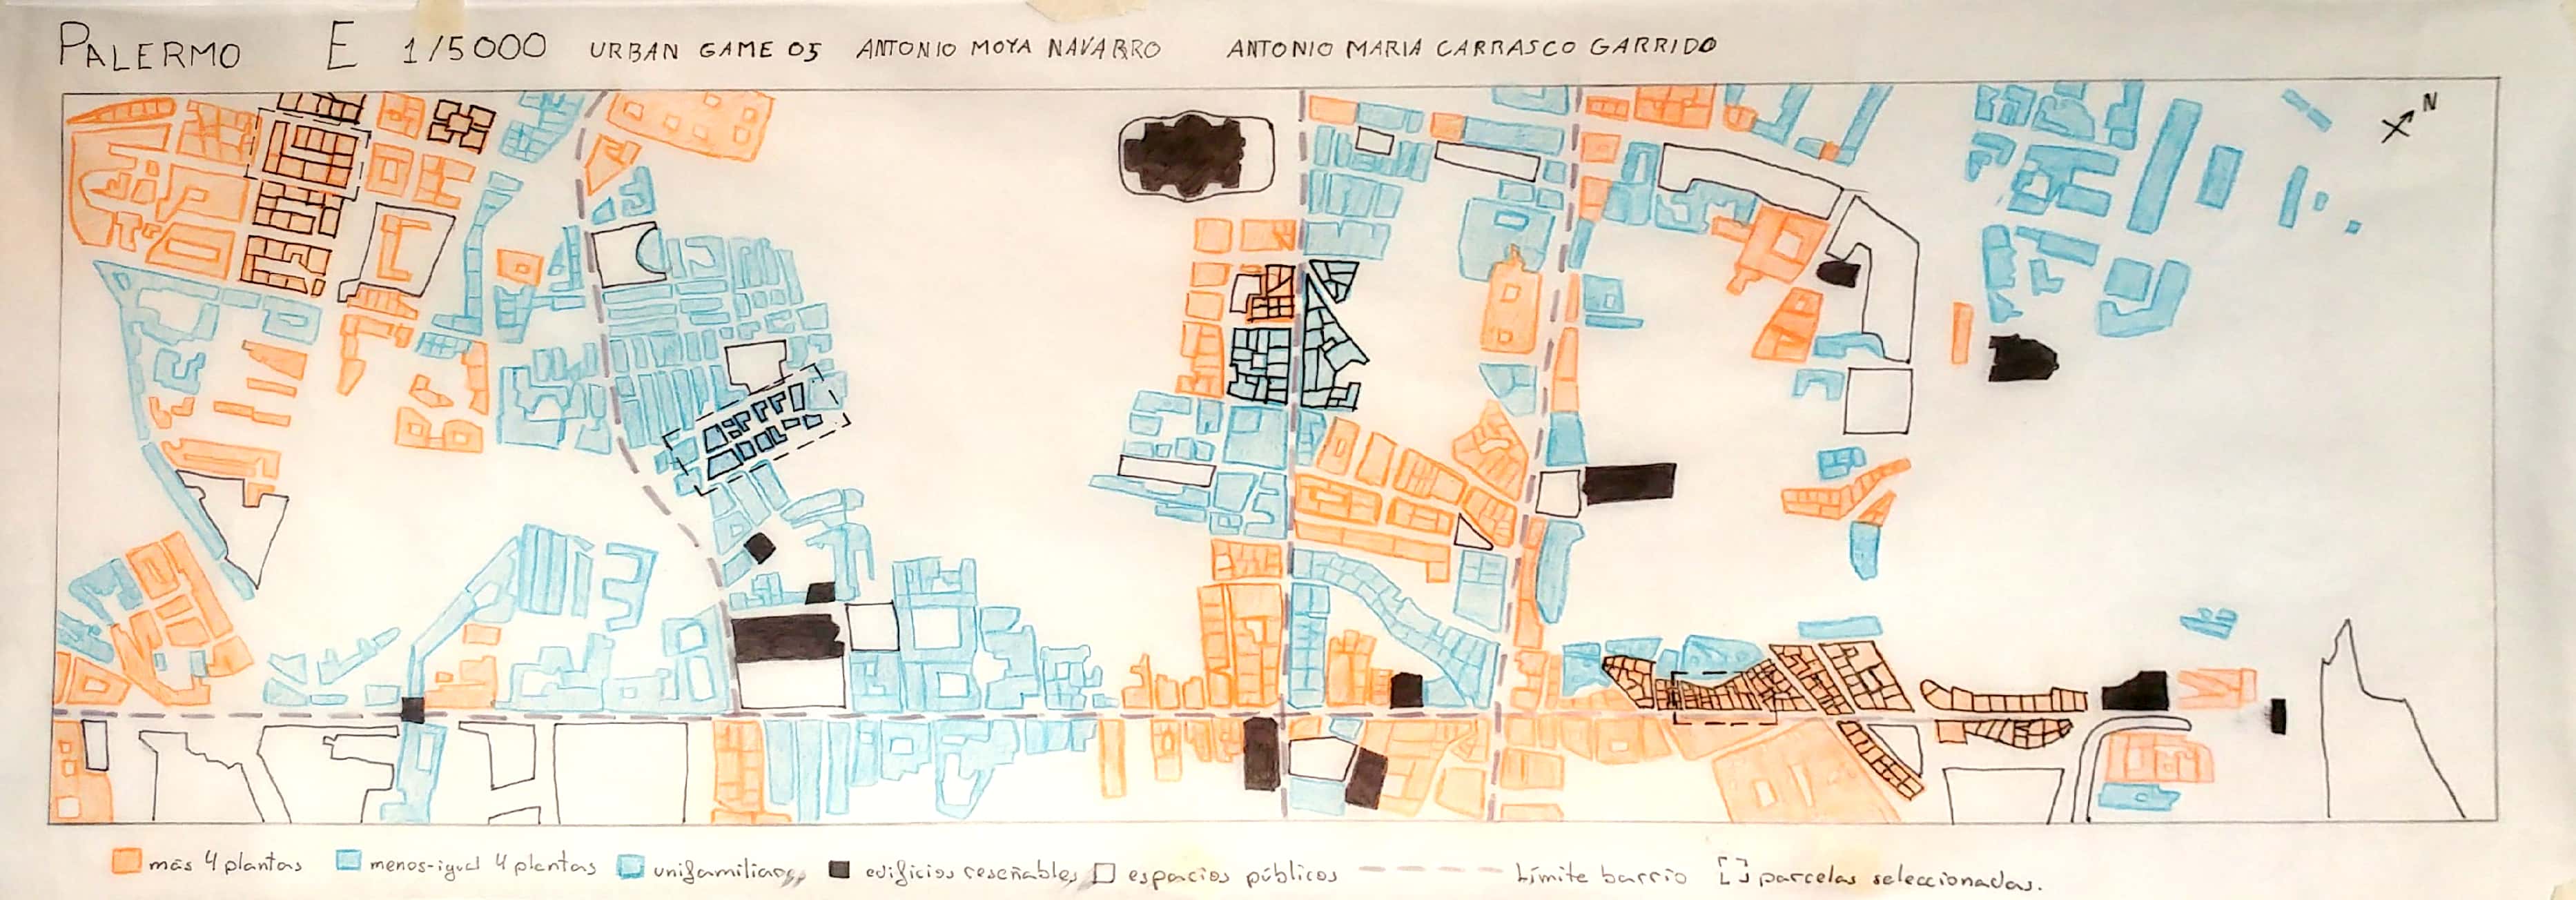 PALERMO E 1/5000 URBAN GAME 05 ANTONIO MOYA NAVARRO ANTONIO MARIA CARRASCO GARRIDO
N
más 4 plantas menos-igual 4 plantas unifamiliares edificios reseñables espacios públicos Límite barrio parcelas seleccionadas.